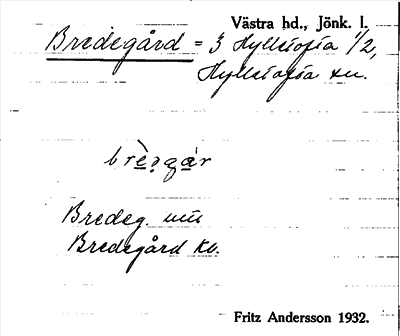 Västra hd., Jönk. l.
Bredegård = 3 Hyllstofta 1/2,
Hyllstofta sn.
Bredeg. uu
Bredegård kb.
Fritz Andersson 1932.